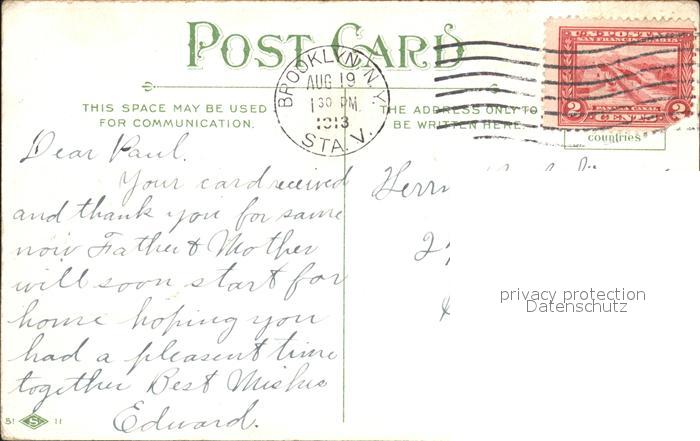 POST CARD
BROOKLYN, N.Y.
AUG 19
1 30 PM
1913
STA. V.
U.S. POSTAGE
SAN FRANCISCO
2 PANAMA CANAL 2
CENTS
THIS SPACE MAY BE USED
FOR COMMUNICATION.
THE ADDRESS ONLY TO
BE WRITTEN HERE.
countries
Dear Paul.
Your card received
and thank you for same
now Father & Mother
will soon start for
home hoping you
had a pleasent time
together Best Wishes
Edward.
Herrn
privacy protection
Datenschutz
51 S 11